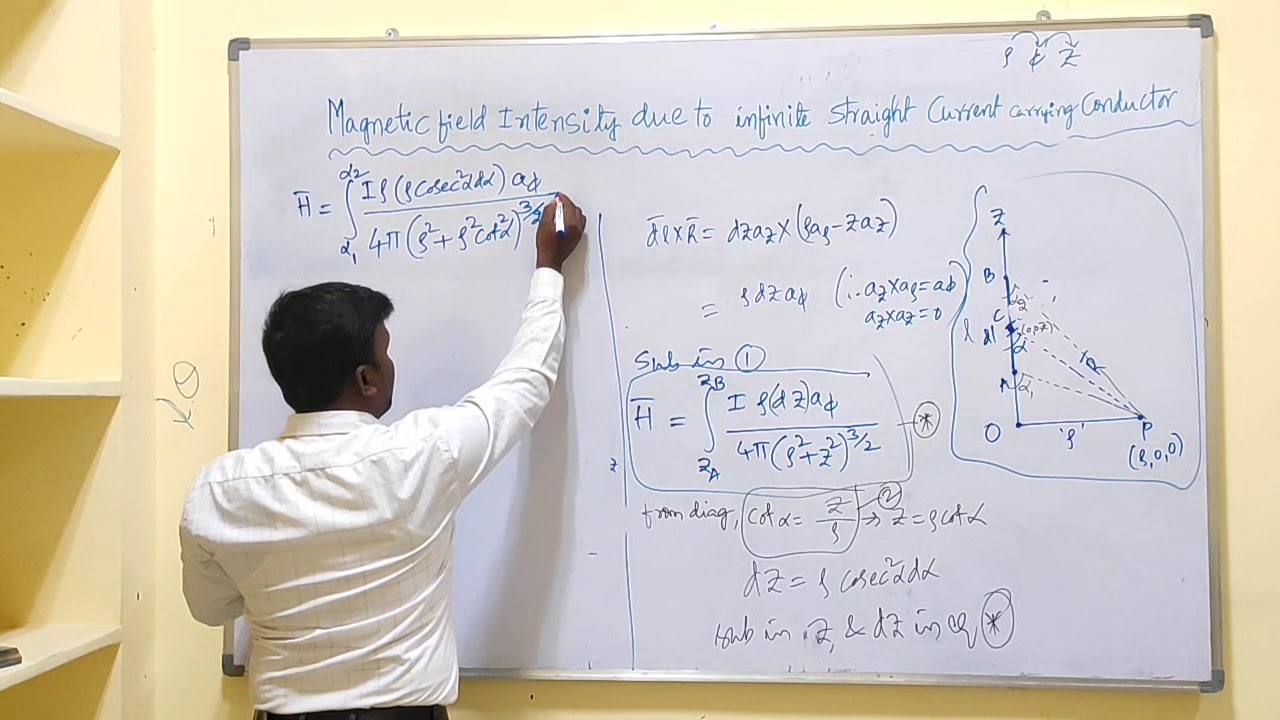 ρ ϕ Z
Magnetic field Intensity due to infinite Straight Current carrying Conductor
H̄ = ∫_{α₁}^{α₂} Iρ(ρcosec²αdα) aϕ / 4π(ρ²+ρ²cot²α)^{3/2}
d̄l×R̄ = dzaz×(ρaρ−zaz)
= ρdzaϕ (∵ az×aρ=aϕ
az×az=0)
Sub in ①
H̄ = ∫_{ZA}^{ZB} I ρ(dz)aϕ / 4π(ρ²+z²)^{3/2} — *
from diag, cotα = z/ρ — ② → z=ρcotα
dz = ρ cosec²αdα
sub in z, & dz in eq *
Z
B
α₂
C
(0,0,z)
l
dl
α
R
A
α₁
O
'ρ'
P
(ρ,0,0)